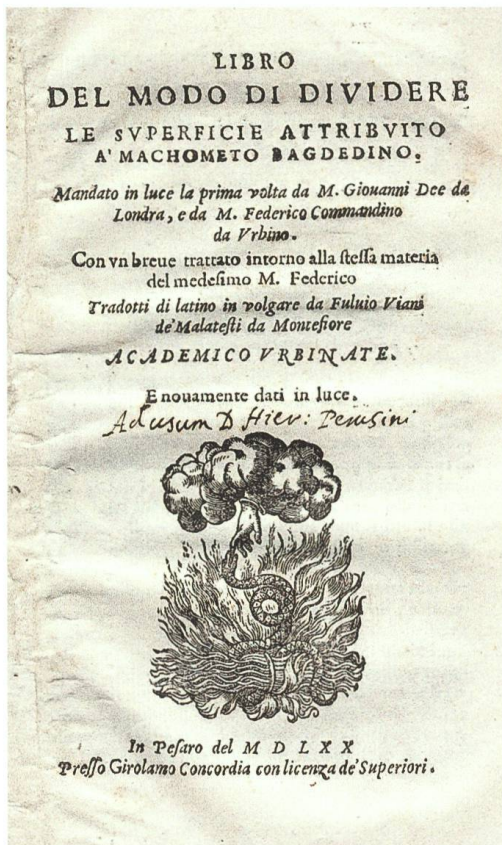 LIBRO
DEL MODO DI DIVIDERE
LE SVPERFICIE ATTRIBVITO
A' MACHOMETO BAGDEDINO.
Mandato in luce la prima volta da M. Giouanni Dee da
Londra, e da M. Federico Commandino
da Vrbino.
Con vn breue trattato intorno alla stessa materia
del medesimo M. Federico
Tradotti di latino in volgare da Fuluio Viani
de' Malatesti da Montefiore
ACADEMICO VRBINATE.
E nouamente dati in luce.
Ad usum D Hier: Perusini
In Pesaro del M D L X X
Presso Girolamo Concordia con licenza de' Superiori.